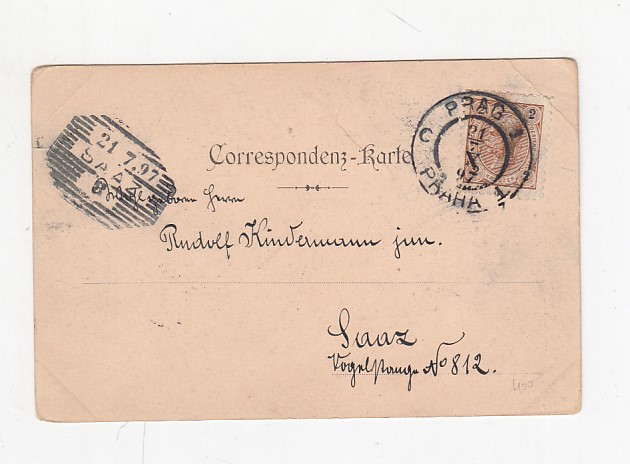 PRAG 1
21
7
97
C
PRAHA 1
2
2
21.7.97
SAAZ
Correspondenz-Karte
Wohlgeboren Herrn
Rudolf Kindermann jun.
Saaz
Vogelstange No 812.
400